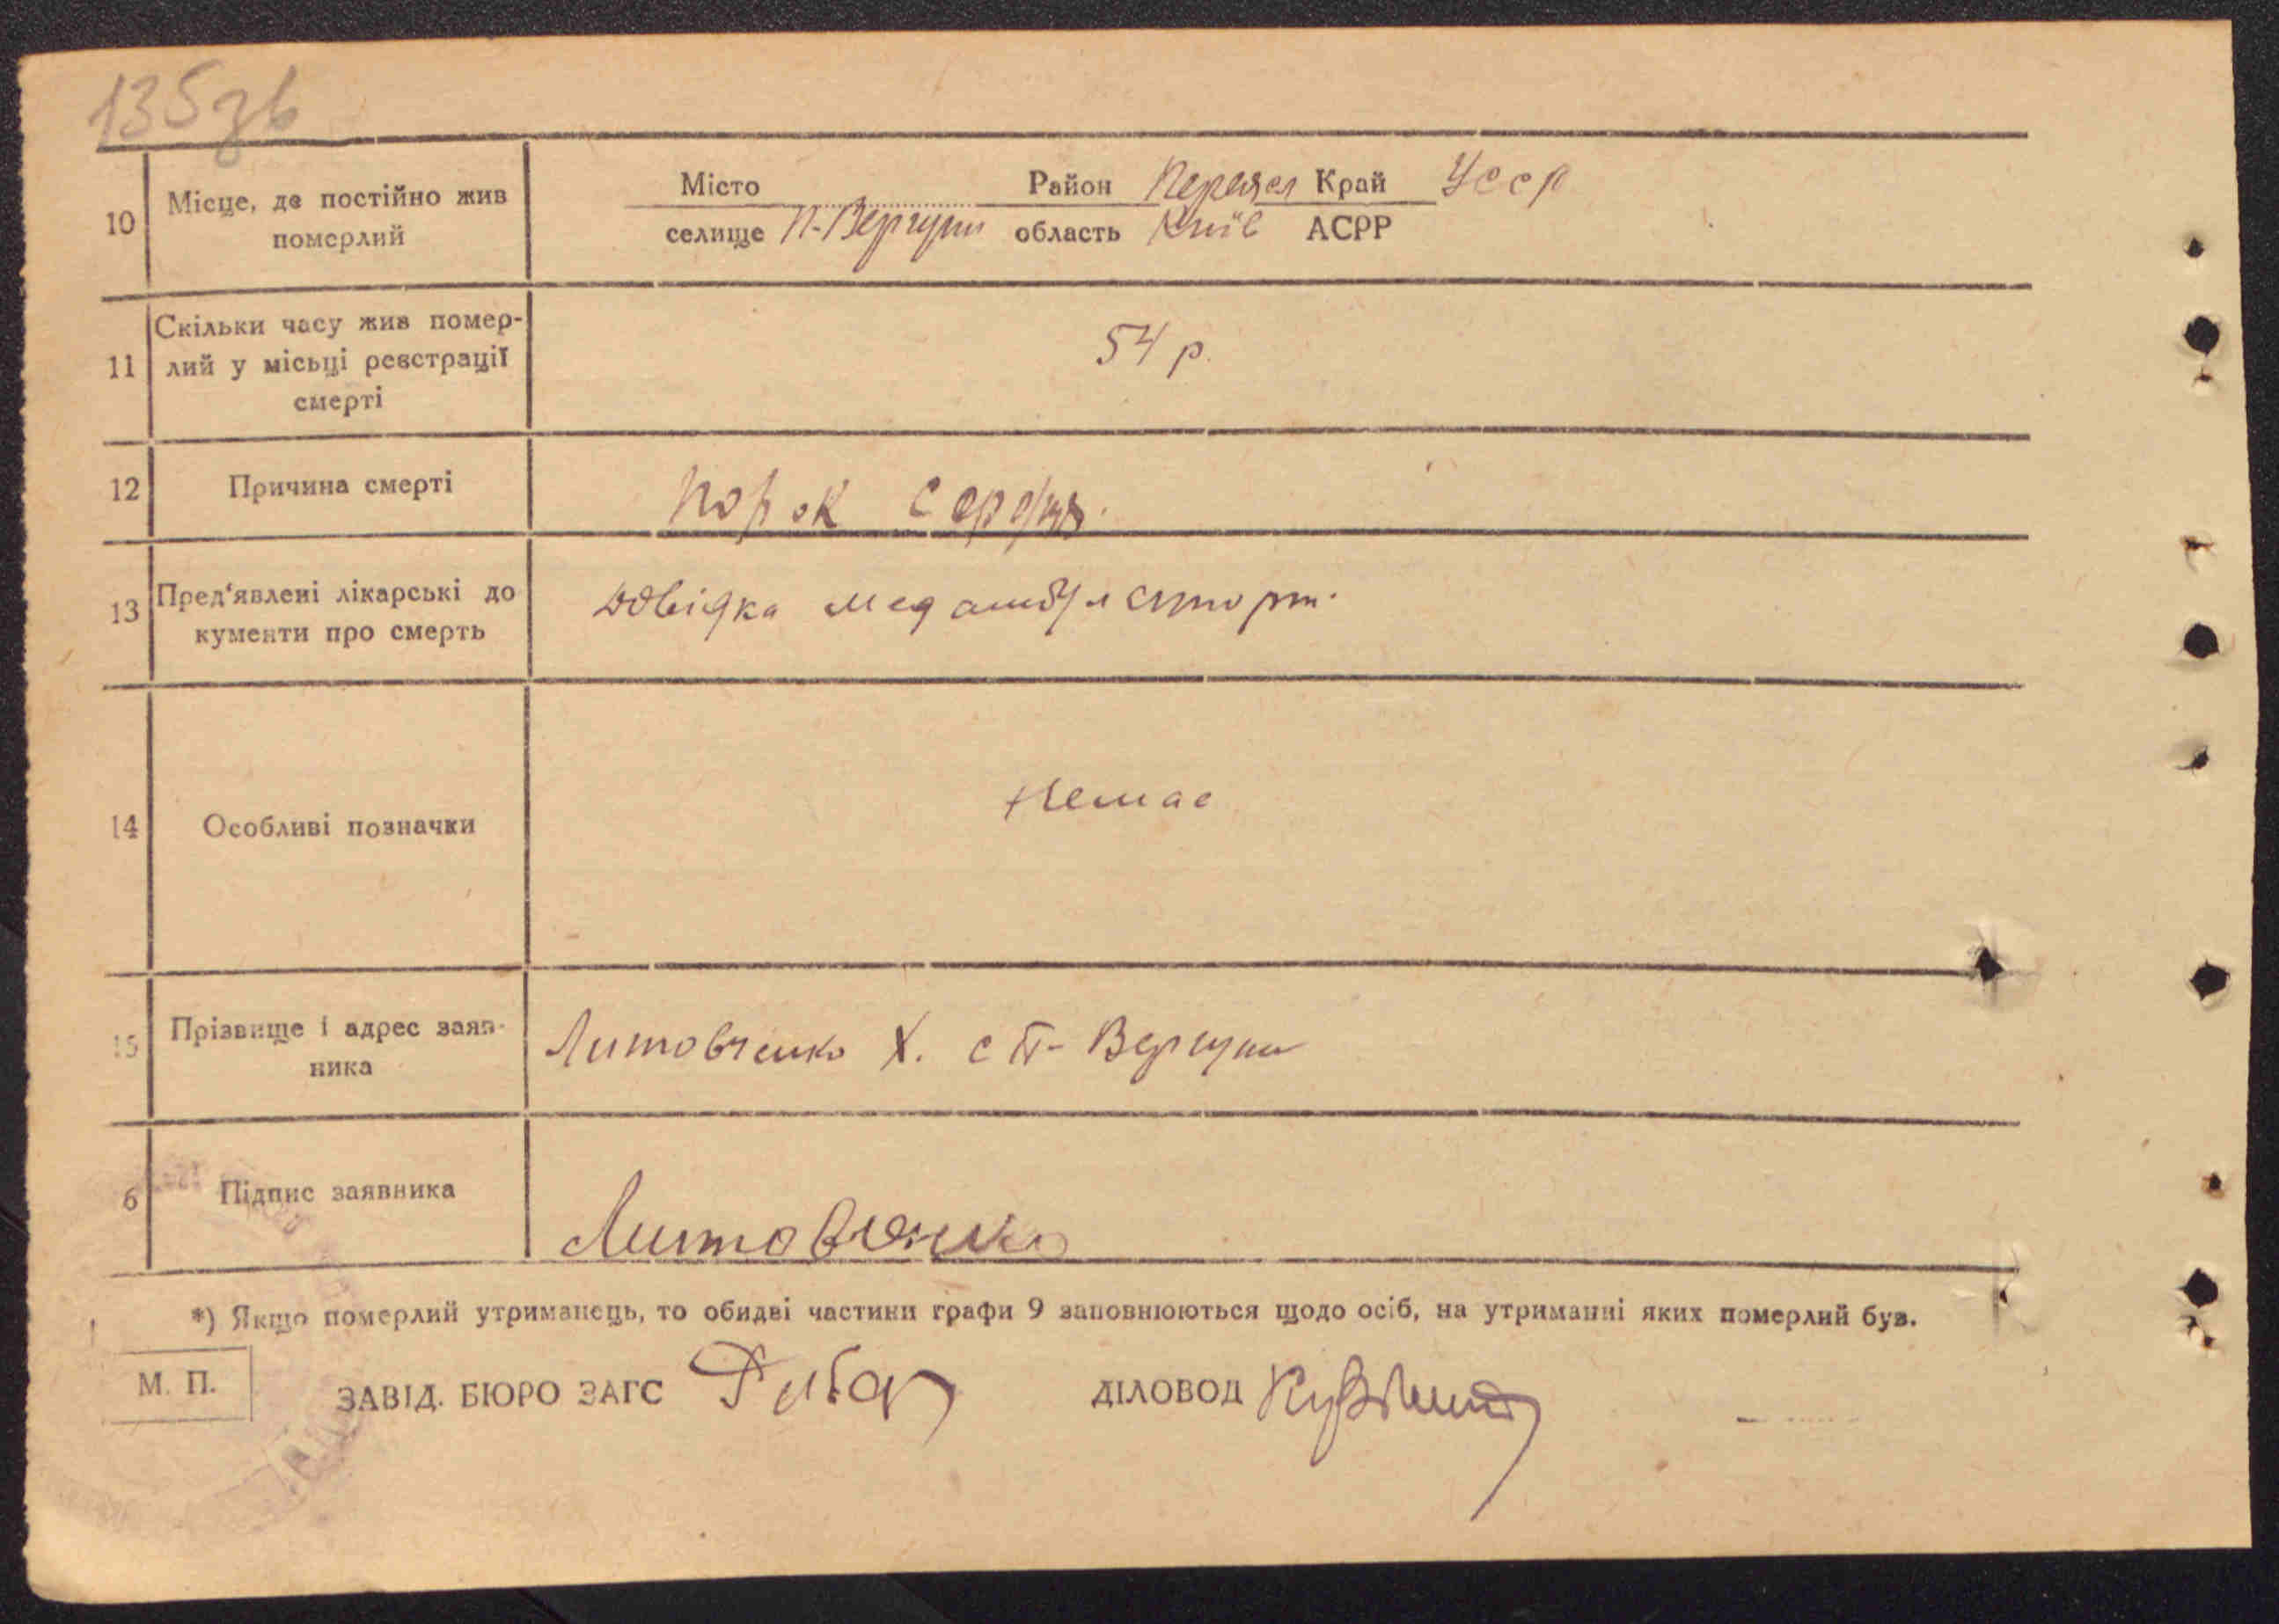 135зв
10 Місце, де постійно жив померлий
Місто Район Переяс Край Уссp
селище П-Вергуни область Київ АСРР
11 Скільки часу жив помер-
лий у місьці реєстрації
смерті
54 р.
12 Причина смерті
порок сердця.
13 Пред'явлені лікарські до
кументи про смерть
Довідка мед
14 Особливі позначки
Немає
15 Прізвище і адрес заяв-
ника
Литовченко Х. с П-Вергуни
6 Підпис заявника
Литовченко
*) Якщо померлий утриманець, то обидві частини графи 9 заповнюються щодо осіб, на утриманні яких померлий був.
М. П.
ЗАВІД. БЮРО ЗАГС ДІЛОВОД